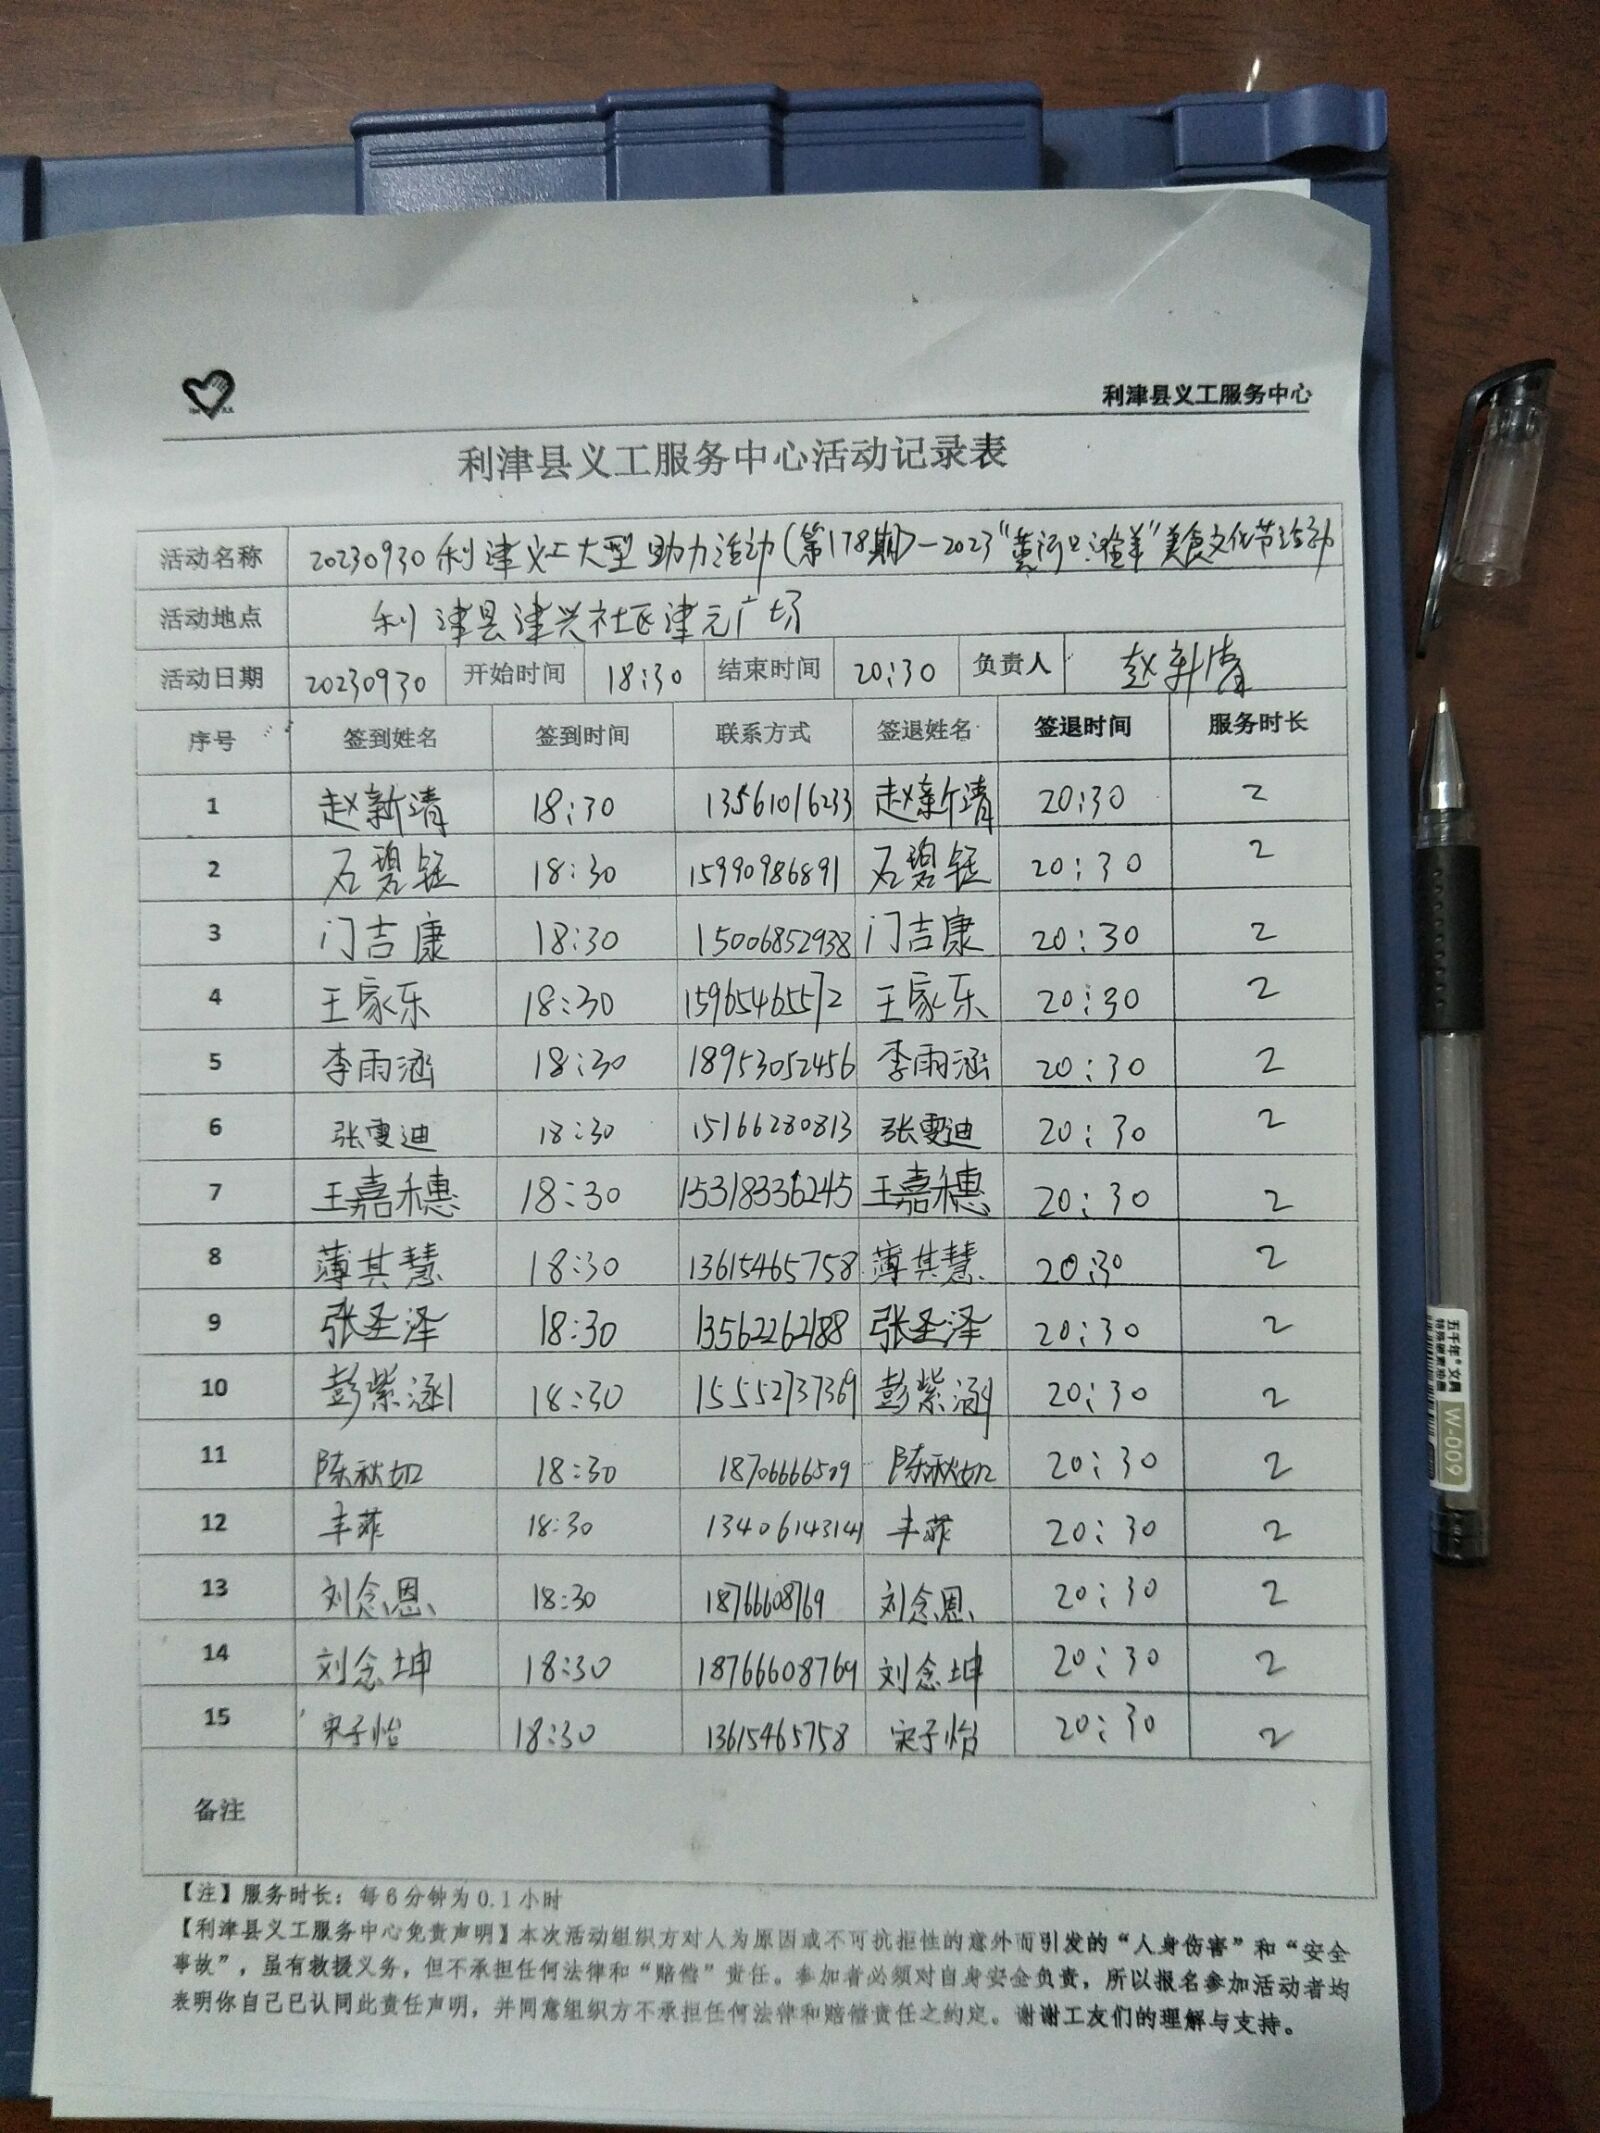 利津县义工服务中心
利津县义工服务中心活动记录表
活动名称 20230930利津义工大型助力活动(第178期)-2023"黄河口滩羊"美食文化节活动
活动地点 利津县津兴社区津元广场
活动日期 20230930 开始时间 18:30 结束时间 20:30 负责人 赵新清
序号 签到姓名 签到时间 联系方式 签退姓名 签退时间 服务时长
1 赵新清 18:30 13561016233 赵新清 20:30 2
2 石碧钰 18:30 15990986891 石碧钰 20:30 2
3 门吉康 18:30 15006852938 门吉康 20:30 2
4 王家乐 18:30 15965465572 王家乐 20:30 2
5 李雨涵 18:30 18953052456 李雨涵 20:30 2
6 张雯迪 18:30 15166280813 张雯迪 20:30 2
7 王嘉穗 18:30 15318336245 王嘉穗 20:30 2
8 薄其慧 18:30 13615465758 薄其慧 20:30 2
9 张圣泽 18:30 13562262188 张圣泽 20:30 2
10 彭紫涵 18:30 15552737369 彭紫涵 20:30 2
11 陈秋如 18:30 18706666509 陈秋如 20:30 2
12 丰菲 18:30 13406143141 丰菲 20:30 2
13 刘念恩 18:30 18766608769 刘念恩 20:30 2
14 刘念坤 18:30 18766608769 刘念坤 20:30 2
15 宋子怡 18:30 13615465758 宋子怡 20:30 2
备注
【注】服务时长：每6分钟为0.1小时
【利津县义工服务中心免责声明】本次活动组织方对人为原因或不可抗拒性的意外而引发的“人身伤害”和“安全
事故”，虽有救援义务，但不承担任何法律和“赔偿”责任。参加者必须对自身安全负责，所以报名参加活动者均
表明你自己已认同此责任声明，并同意组织方不承担任何法律和赔偿责任之约定。谢谢工友们的理解与支持。
五千年®文具
W-009